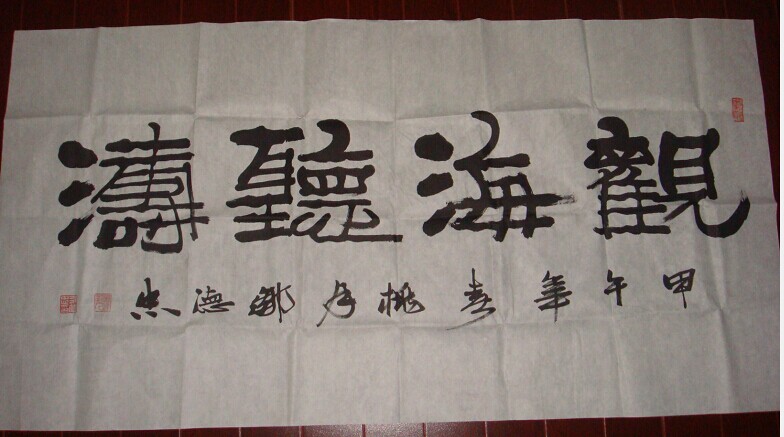 觀海聽濤
甲午年春桃月鄒德忠